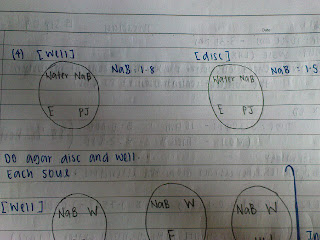 (4) [Well] [disc]
Water NaB NaB : 1.8 Water NaB NaB : 1.5
E PJ E PJ
Do agar disc and well.
Each soul.
[Well] NaB W NaB W NaB W
E